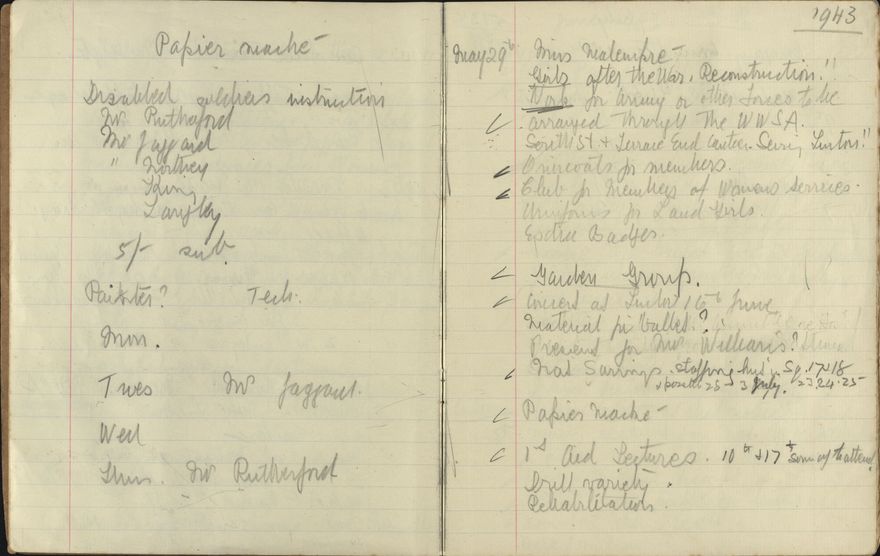 Papier mache
Disabled soldiers instruction
Mr Rutherford
Mr Jaggard
" Northey
King
Langley
5/- sub.
Painter? Tech.
Mon.
Tues Mr Jaggard.
Wed
Thurs. Mr Rutherford
1943
May 29th Miss Malempre
Girls after the War. Reconstruction!!
Work for Army or other Forces to be
arranged through the WWSA.
& Terrace End Canteen.
Overcoats for members.
Club for Members of Womens Services.
Uniforms for Land Girls.
Badges.
Garden Group.
at 16th June
Material for Ballet?
Present for Mrs Williams?
Nat Savings. Sg. 17 18
3 July. 23.24.25
Papier Mache
1st Aid Lectures. 10th & 17th to attend
Drill variety.
Rehabilitation.